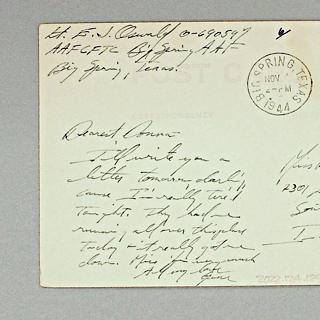 Lt. E. J. Oswald O-690597
AAFCFTC Big Spring AAF
Big Spring, Texas.
BIG SPRING, TEXAS
NOV
PM
1944
Dearest Anna-
I'll write you a
letter tomorrow darlin
cause I'm really tired
tonight. They had me
running all over this place
today & it really got me
down. Miss you very much
All my love
Gene
Miss
4301